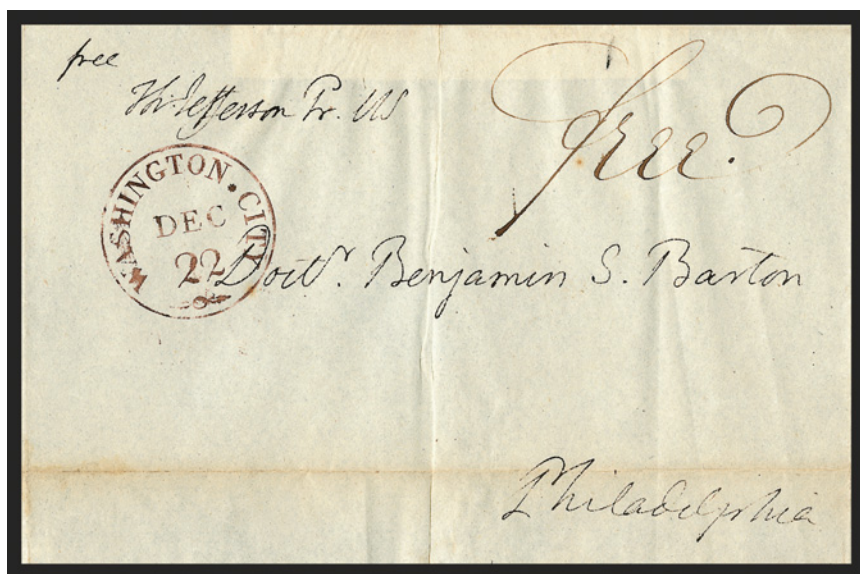 free
Th: Jefferson Pr. US
free.
WASHINGTON. CITY
DEC
22
Doctr. Benjamin S. Barton
Philadelphia